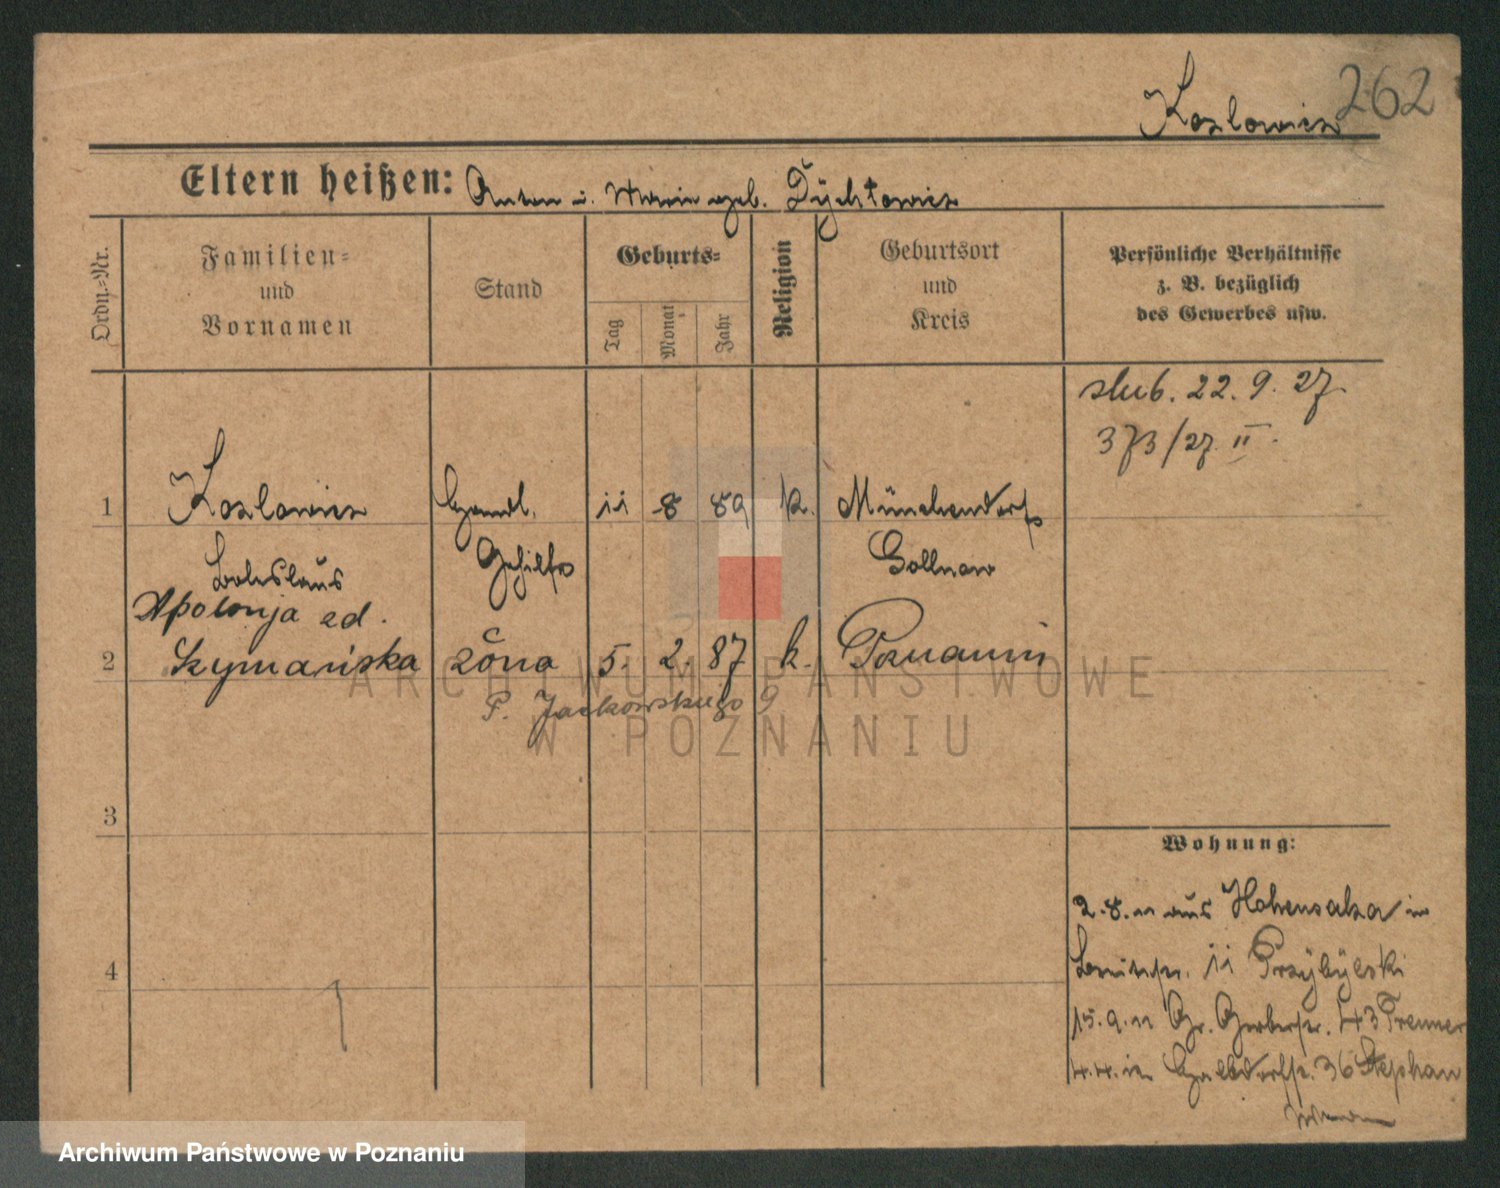 262
Kozlowicz
Eltern heißen: Anton u. Maria geb. Dychtowicz
Ordn.=Nr.
Familien=
und
Vornamen
Stand
Geburts=
Tag
Monat
Jahr
Religion
Geburtsort
und
Kreis
Persönliche Verhältnisse
z. B. bezüglich
des Gewerbes usw.
slub. 22. 9. 27
373/27 II.
1 Kozlowicz Handl. 11 8 89 k. Münchendorf
Boleslaus Gehilfe Gollnow
Apolonja zd.
2 Szymańska żona 5. 2. 87 k. Poznaniu
P. Jackowskiego 9
3
Wohnung:
2.8.11 aus Hohensalza in
11 Przybylski
4
15.9.11 Gr. Gerberstr. 43 Trenner
4.4.12 36 Stephan
ARCHIWUM PAŃSTWOWE
W POZNANIU
Archiwum Państwowe w Poznaniu